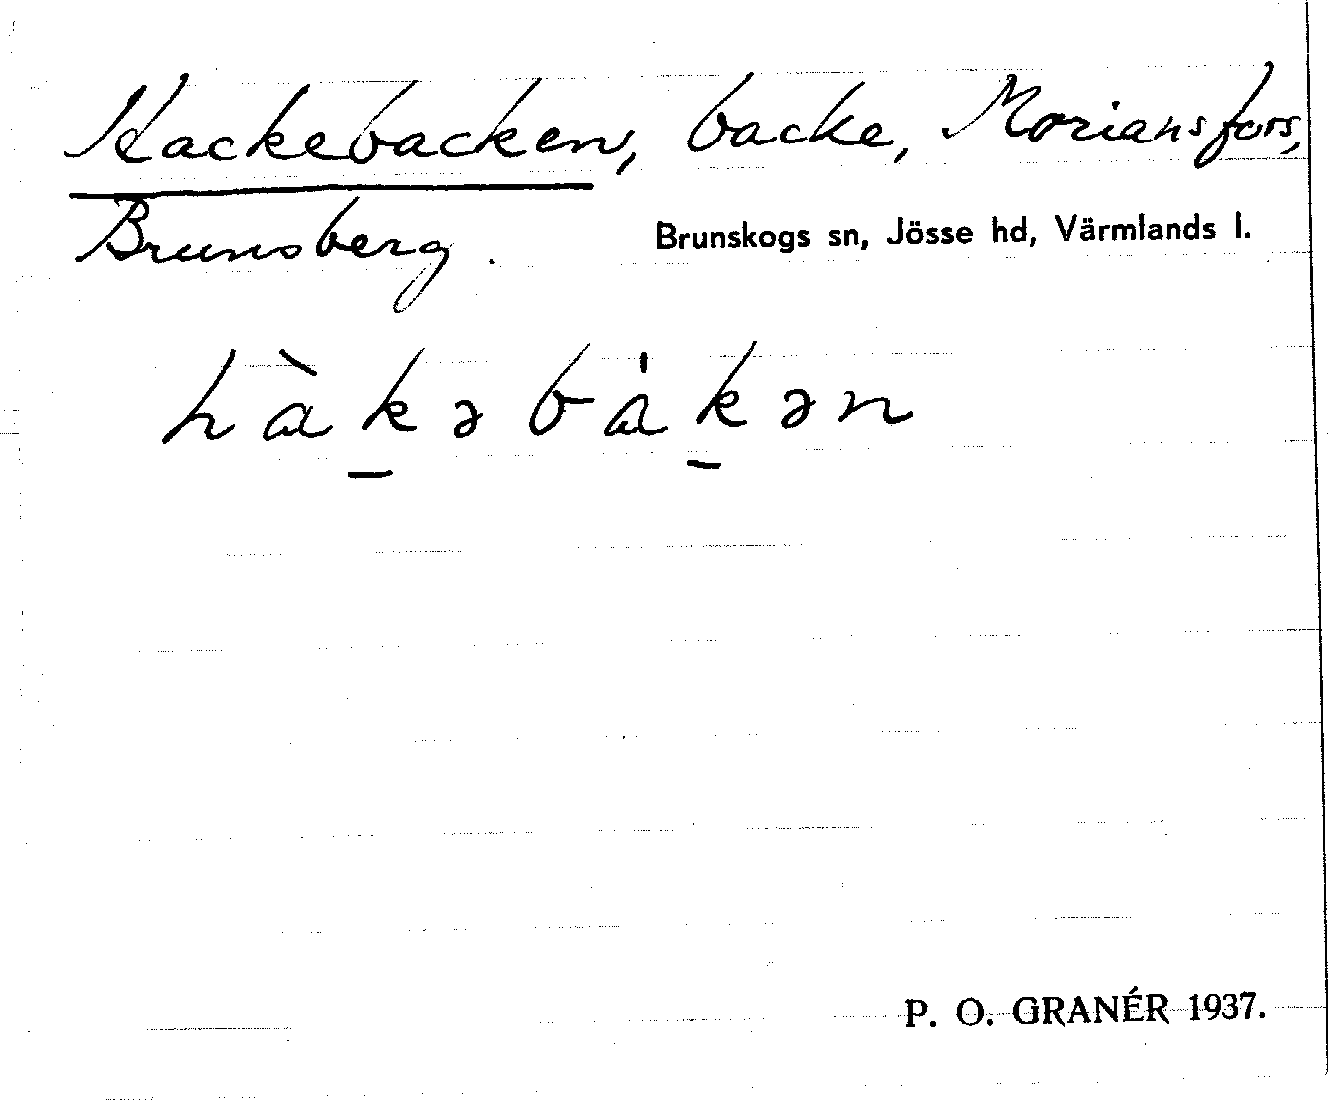 Hackebacken, backe, Moriansfors,
Brunsberg. Brunskogs sn, Jösse hd, Värmlands l.
hàkəbákən
P. O. GRANÉR 1937.